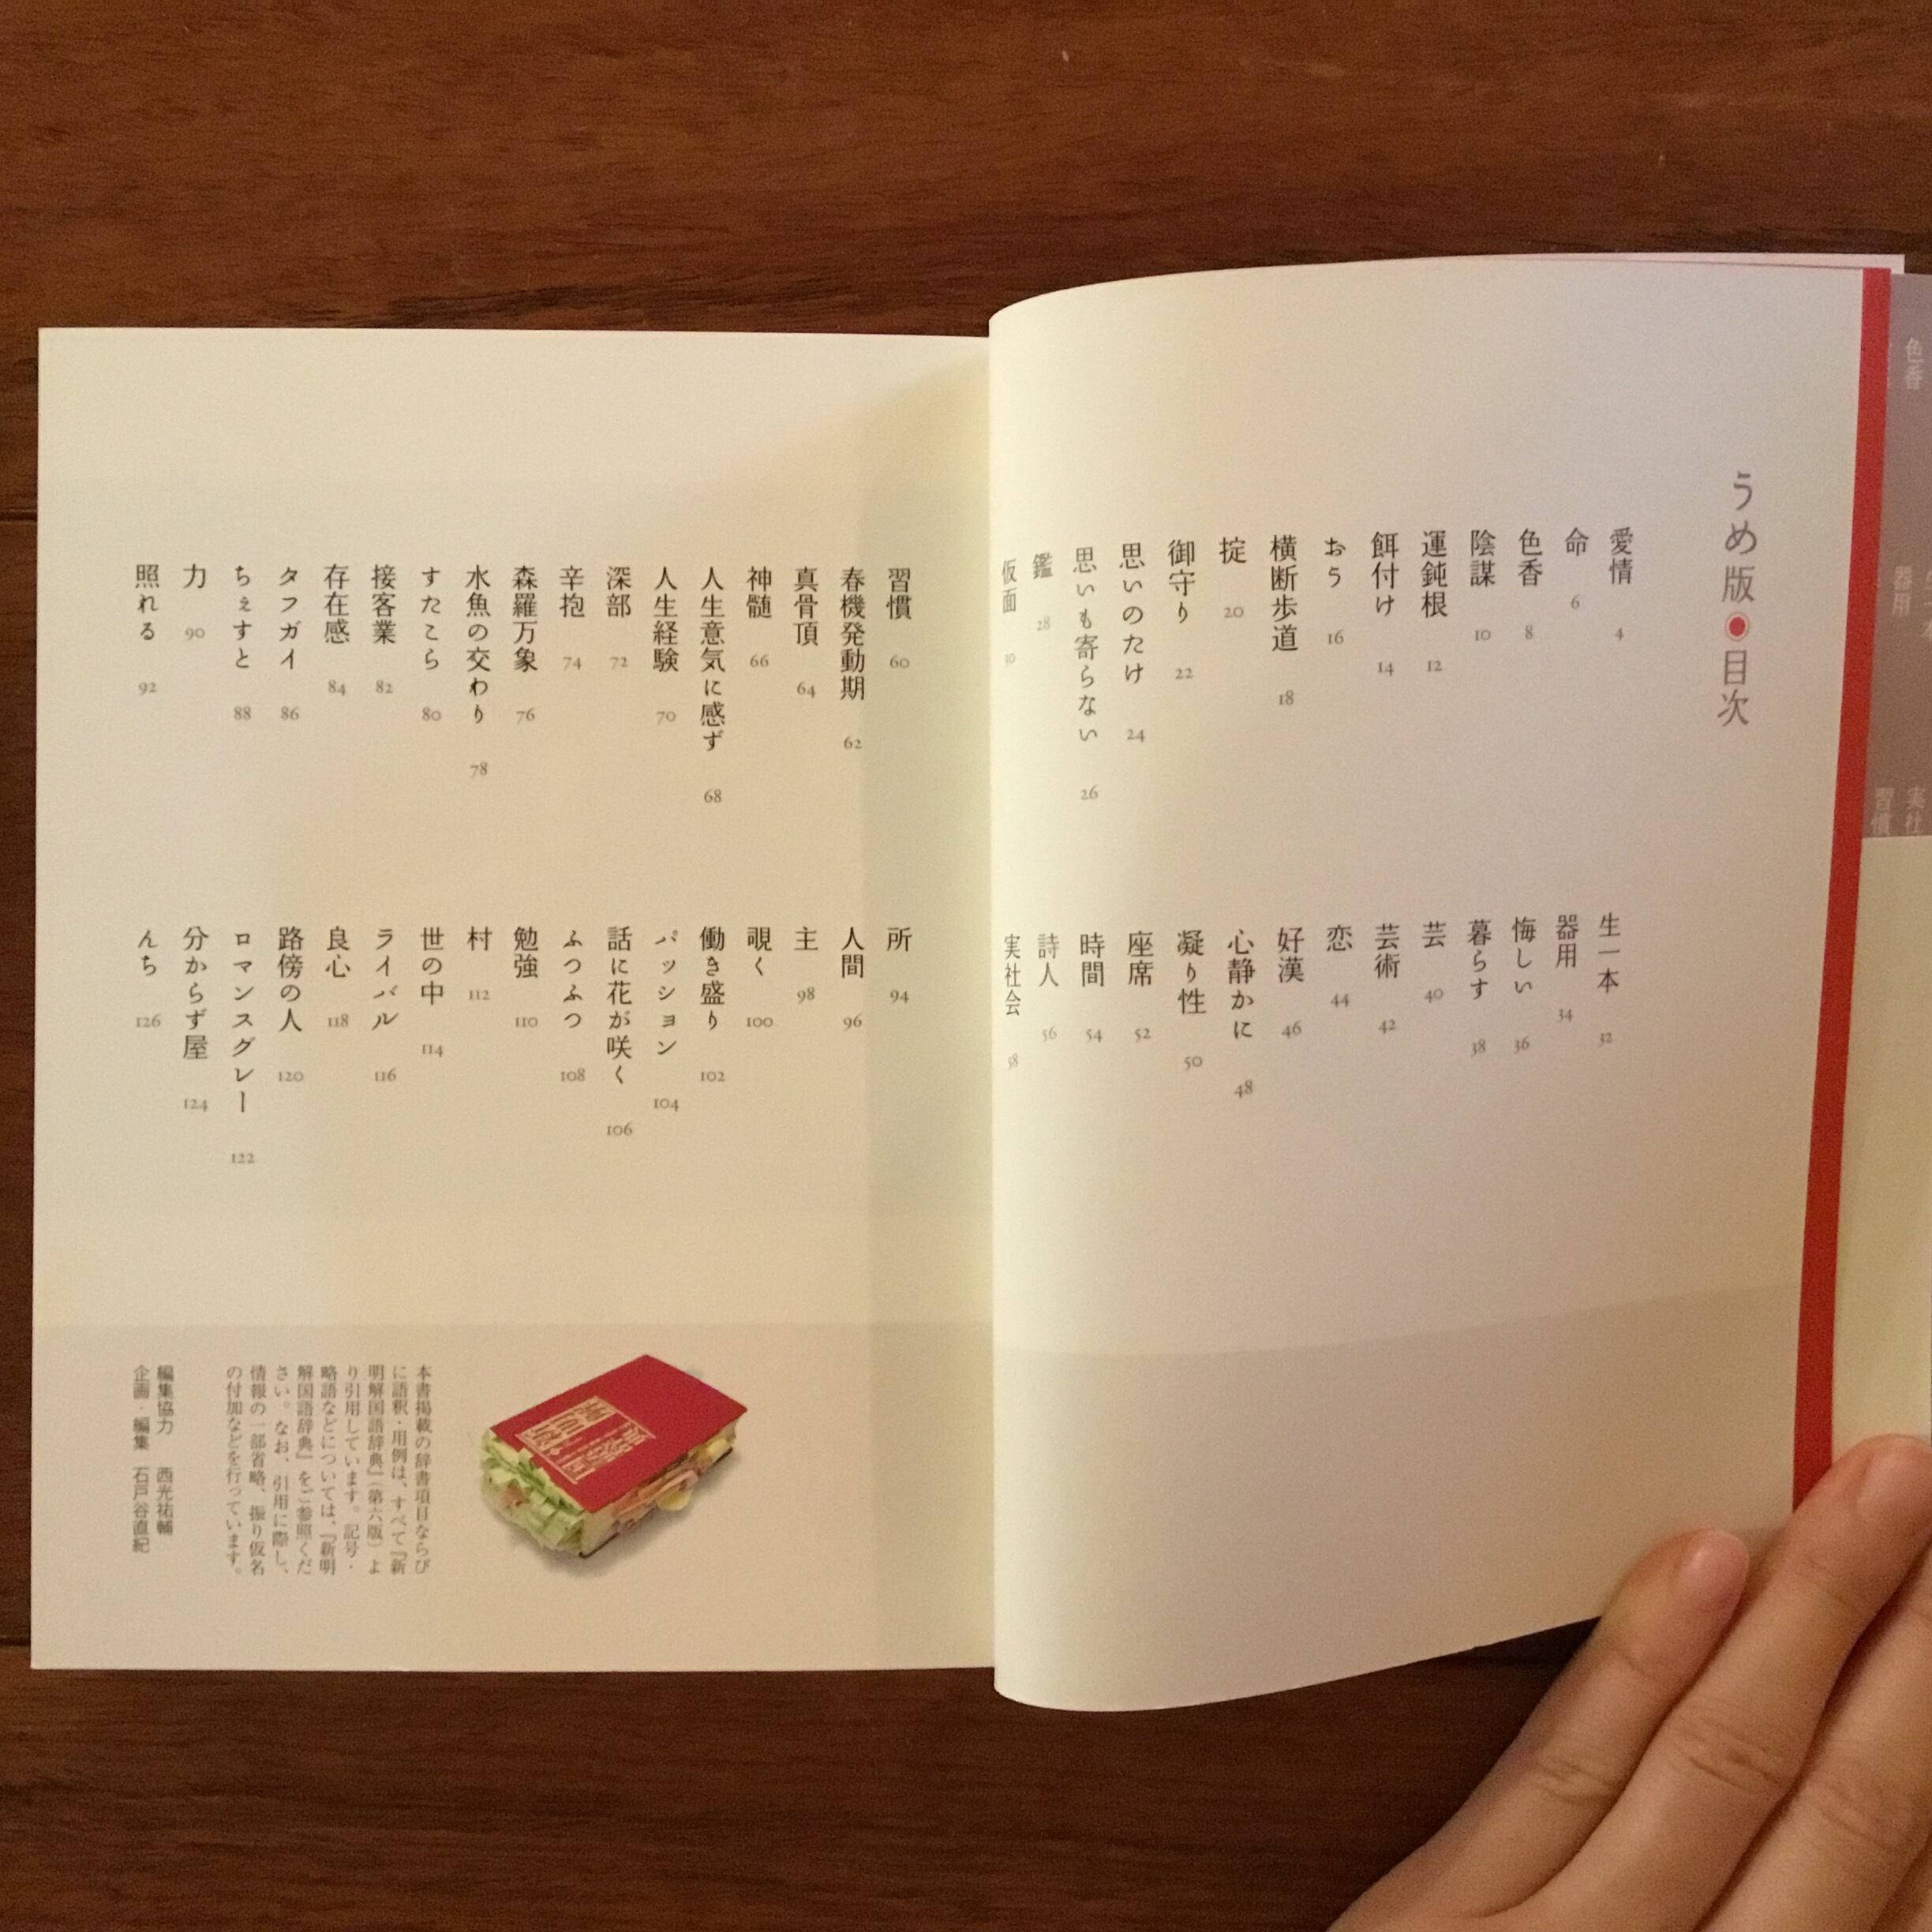 うめ版●目次
愛情 4
命 6
色香 8
陰謀 10
運鈍根 12
餌付け 14
おう 16
横断歩道 18
掟 20
御守り 22
思いのたけ 24
思いも寄らない 26
鑑 28
仮面 30
生一本 32
器用 34
悔しい 36
暮らす 38
芸 40
芸術 42
恋 44
好漢 46
心静かに 48
凝り性 50
座席 52
時間 54
詩人 56
実社会 58
習慣 60
春機発動期 62
真骨頂 64
神髄 66
人生意気に感ず 68
人生経験 70
深部 72
辛抱 74
森羅万象 76
水魚の交わり 78
すたこら 80
接客業 82
存在感 84
タフガイ 86
ちぇすと 88
力 90
照れる 92
所 94
人間 96
主 98
覗く 100
働き盛り 102
パッション 104
話に花が咲く 106
ふつふつ 108
勉強 110
村 112
世の中 114
ライバル 116
良心 118
路傍の人 120
ロマンスグレー 122
分からず屋 124
んち 126
本書掲載の辞書項目ならび
に語釈・用例は、すべて『新
明解国語辞典』(第六版)よ
り引用しています。記号・
略語などについては、『新明
解国語辞典』をご参照くだ
さい。なお、引用に際し、
情報の一部省略、振り仮名
の付加などを行っています。
編集協力 西光祐輔
企画・編集 石戸谷直紀
色香
器用
実社
習慣